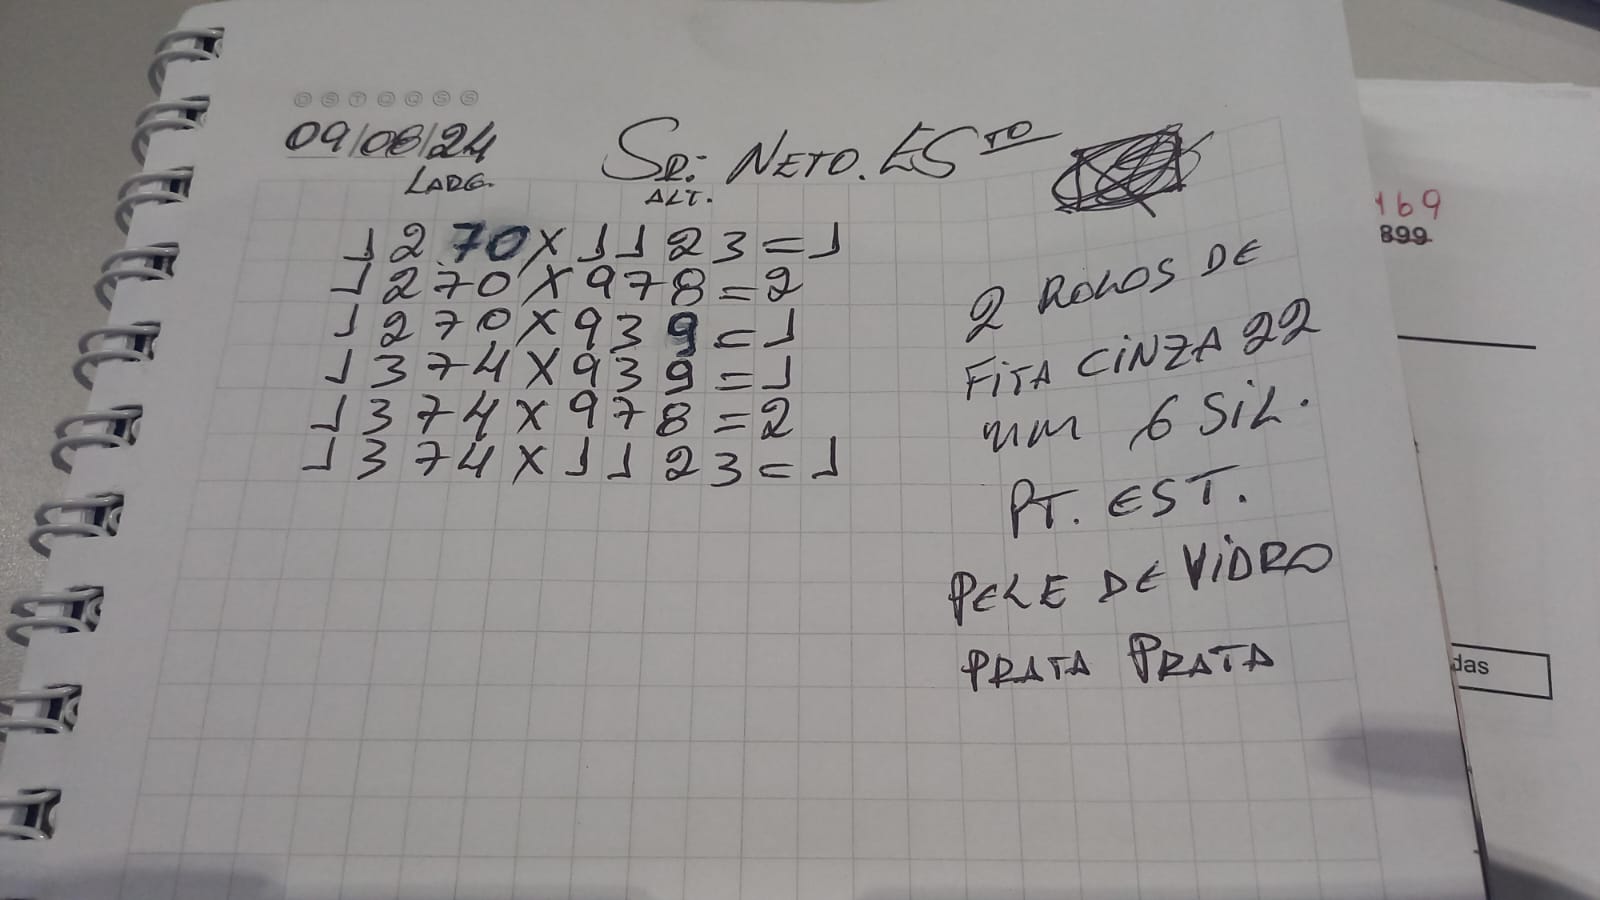 D S T Q Q S S
09/08/24
SR: NETO. ESTO
LARG.
ALT.
1270 X 1123 = 1
1270 X 978 = 2
1270 X 939 = 1
1374 X 939 = 1
1374 X 978 = 2
1374 X 1123 = 1
2 ROLOS DE
FITA CINZA 22
mm 6 SIL.
PT. EST.
PELE DE VIDRO
PRATA PRATA
169
899
das